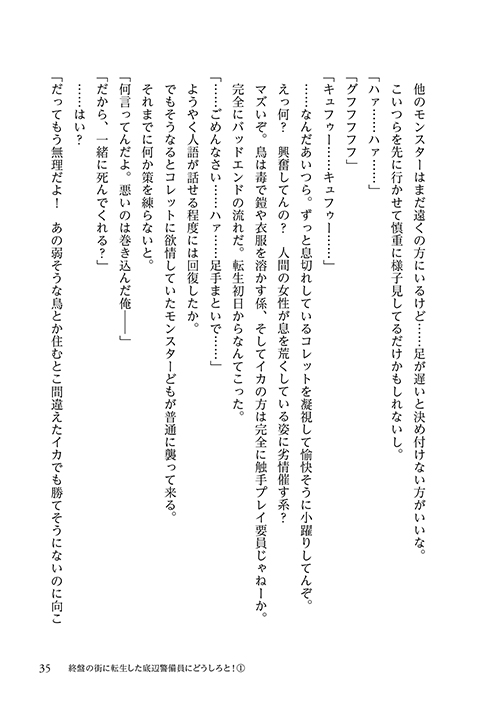 他のモンスターはまだ遠くの方にいるけど……足が遅いと決め付けない方がいいな。
こいつらを先に行かせて慎重に様子見してるだけかもしれないし。
「ハァ……ハァ……」
「グフフフフフ」
「キュフゥー……キュフゥー……」
……なんだあいつら。ずっと息切れしているコレットを凝視して愉快そうに小躍りしてんぞ。
えっ何？　興奮してんの？　人間の女性が息を荒くしている姿に劣情催す系？
マズいぞ。鳥は毒で鎧や衣服を溶かす係、そしてイカの方は完全に触手プレイ要員じゃねーか。
完全にバッドエンドの流れだ。転生初日からなんてこった。
「……ごめんなさい……ハァ……足手まといで……」
ようやく人語が話せる程度には回復したか。
でもそうなるとコレットに欲情していたモンスターどもが普通に襲って来る。
それまでに何か策を練らないと。
「何言ってんだよ。悪いのは巻き込んだ俺――」
「だから、一緒に死んでくれる？」
……はい？
「だってもう無理だよ！　あの弱そうな鳥とか住むとこ間違えたイカでも勝てそうにないのに向こ
35　終盤の街に転生した底辺警備員にどうしろと！①